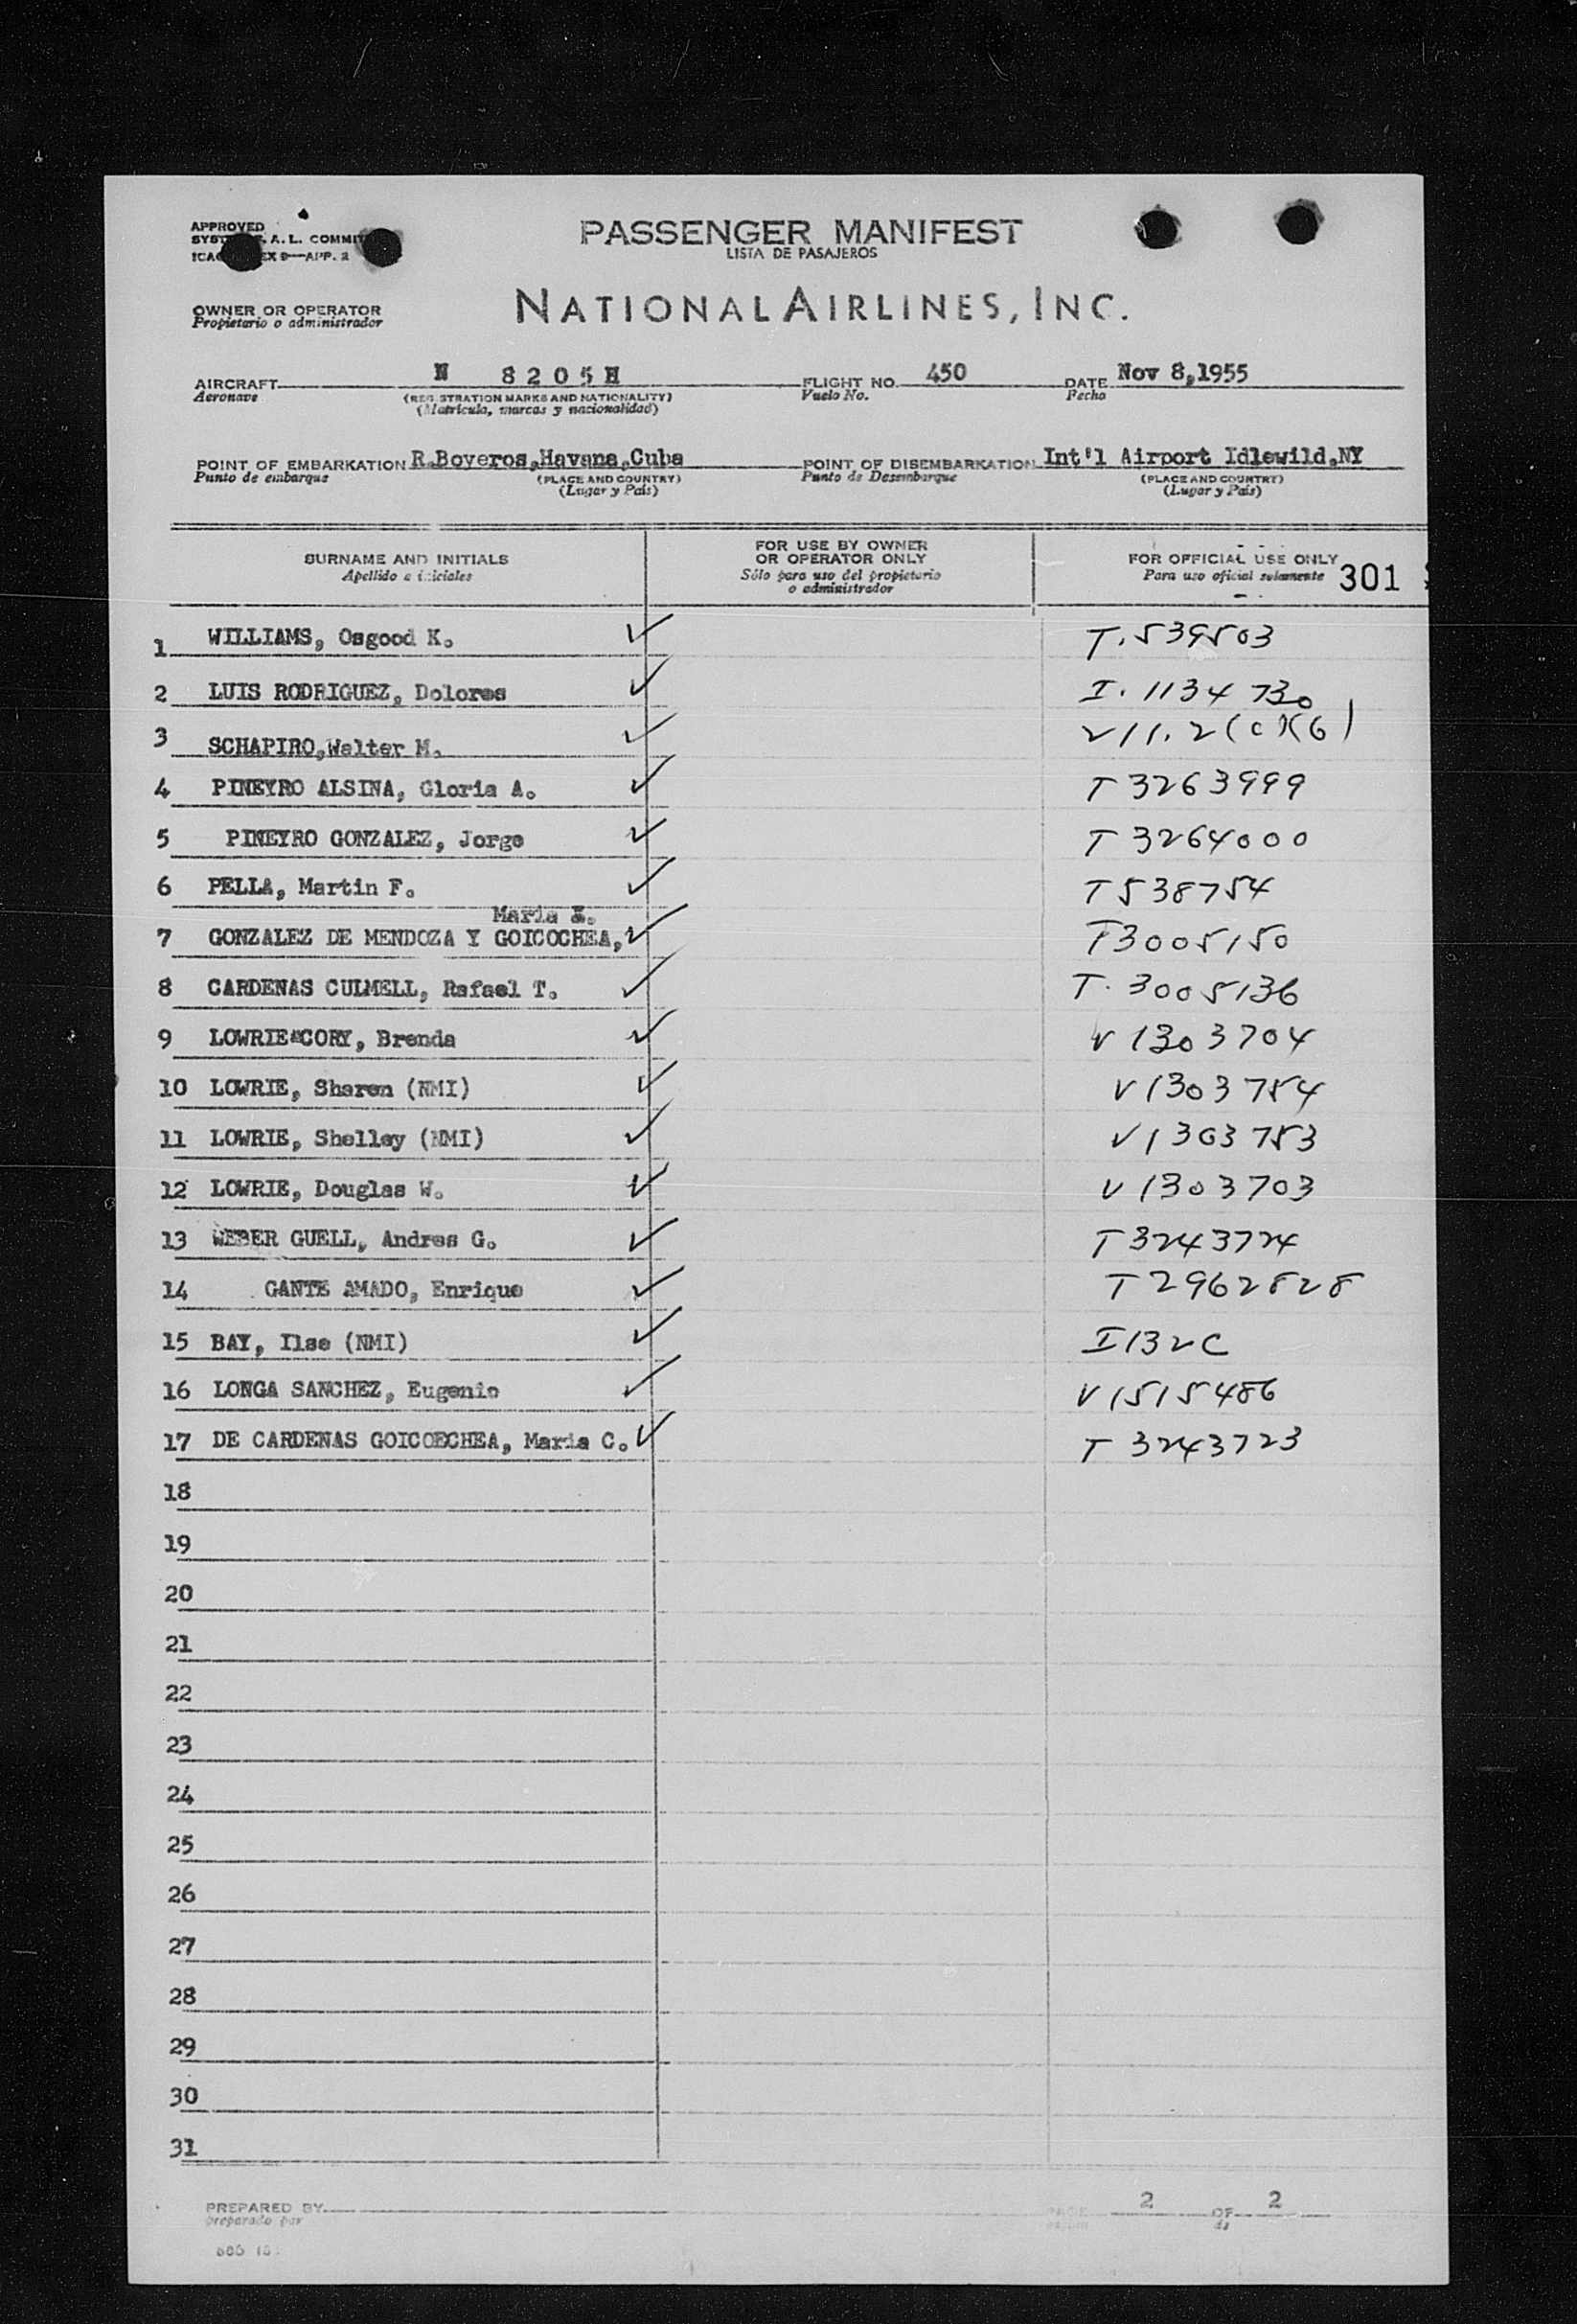 APPROVED
A. L.
APP. 2
PASSENGER MANIFEST
LISTA DE PASAJEROS
OWNER OR OPERATOR
Propietario o administrador
NATIONAL AIRLINES, INC.
AIRCRAFT N 8205H FLIGHT NO. 450 DATE Nov 8,1955
Aeronave (REGISTRATION MARKS AND NATIONALITY) Vuelo No. Fecha
(Matricula, marcas y nacionalidad)
POINT OF EMBARKATION R.Boyeros,Havana,Cuba POINT OF DISEMBARKATION Int'l Airport Idlewild,NY
Punto de embarque (PLACE AND COUNTRY) Punto de Desembarque (PLACE AND COUNTRY)
(Lugar y País) (Lugar y País)
SURNAME AND INITIALS
Apellido e iniciales
FOR USE BY OWNER
OR OPERATOR ONLY
Sólo para uso del propietario
o administrador
FOR OFFICIAL USE ONLY
Para uso oficial solamente 301
1 WILLIAMS, Osgood K. T.539503
2 LUIS RODRIGUEZ, Dolores I. 1134 730
3 SCHAPIRO,Walter M. V11.2(c)(6)
4 PINEYRO ALSINA, Gloria A. T 3263999
5 PINEYRO GONZALEZ, Jorge T 3264000
6 PELLA, Martin F. T538754
Maria
7 GONZALEZ DE MENDOZA Y GOICOCHEA, T3005150
8 CARDENAS CULMELL, Rafael T. T. 3005136
9 LOWRIE CORY, Brenda V 1303704
10 LOWRIE, Sharen (NMI) V1303754
11 LOWRIE, Shelley (NMI) V1303753
12 LOWRIE, Douglas W. V1303703
13 WEBER GUELL, Andres G. T3243724
14 GANTE AMADO, Enrique T2962828
15 BAY, Ilse (NMI) I132C
16 LONGA SANCHEZ, Eugenio V1515486
17 DE CARDENAS GOICOECHEA, Maria C. T 3243723
18
19
20
21
22
23
24
25
26
27
28
29
30
31
PREPARED BY PAGE 2 OF 2
preparado por de